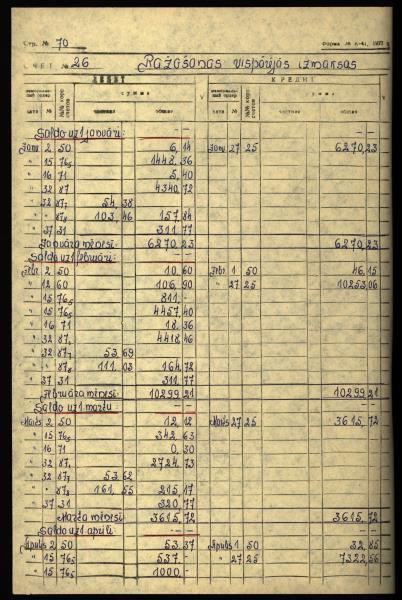 Стр. № 70 Форма № К-41, 1977
СЧЕТ № 26 Ražošanas vispārējās izmaksas
ДЕБЕТ КРЕДИТ
мемориальный ордер №№ корр. счетов сумма V мемориальный ордер №№ корр. счетов сумма V
дата № частные общие дата № частные общие
Saldo uz 1 janvāri: — — — —
Janv 2 50 6,14 Janv 27 25 6270,23
" 15 76₅ 1448,36
" 16 71 5,40
" 32 87 4340,72
" 32 87₇ 54,38
" " 87₈ 103,46 157,84
" 37 31 311,77
Janvāra mēnesī: 6270,23 6270,23
Saldo uz 1 februāri: — — — —
Febr. 2 50 10,60 Febr 1 50 46,15
" 12 60 106,90 " 27 25 10253,06
" 15 76₅ 811,-
" 15 76₅ 4457,40
" 16 71 18,36
" 32 87 4418,46
" 32 87₇ 53,69
" " 87₈ 111,03 164,72
" 37 31 311,77
Februāra mēnesī: 10299,21 10299,21
Saldo uz 1 martu: — — — —
Marts 2 50 12,12 Marts 27 25 3615,72
" 15 76₅ 342,63
" 16 71 0,30
" 32 87 2724,73
" 32 87₇ 53,62
" " 87₈ 161,55 215,17
" 37 31 320,77
Marta mēnesī: 3615,72 3615,72
Saldo uz 1 aprīli: — — — —
Aprīlis 2 50 53,37 Aprīlis 1 50 32,85
" 15 76₅ 537,- " 27 25 7322,56
" 15 76₅ 1000,-